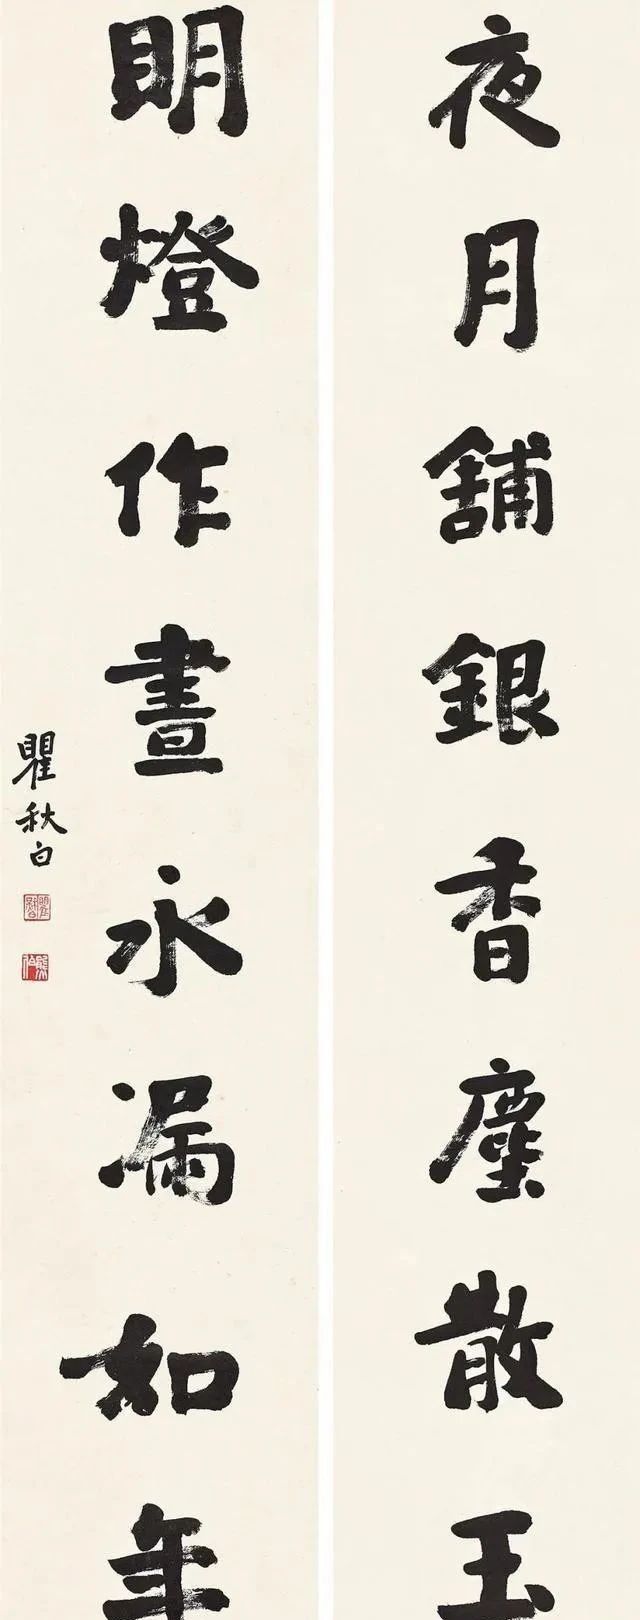 夜月舖銀香塵散玉
明燈作晝永漏如年
瞿秋白